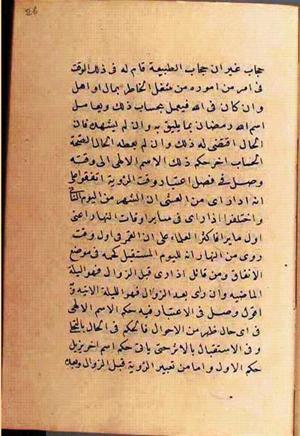 26
حجاب غير ان حجاب الطبيعة قام له في ذلك الوقت
في امر من اموره من شغل الخاطر بمال او اهل
وان كان في الله فيعمل بحساب ذلك ويعامل
اسم الله رمضان بما يليق به وان لم يشهد فان
الحال اقتضى له ذلك وان لم يعطه الحال لصحة
الحساب اخر حكم ذلك الاسم الالهي الى وقته
وصل في فصل اعتبار وقت الرؤية اتفقوا على
انه اذا رأى من العشي ان الشهر من اليوم الثاني
واختلفوا اذا رأى في سائر اوقات النهار اعني
اول ما يرا فاكثر العلماء على ان القمر في اول وقت
روى من النهار انه لليوم المستقبل كحكمه في موضع
الاتفاق ومن قائل اذا رأى قبل الزوال فهو لليلة
الماضيه وان رأى بعد الزوال فهو لليلة الاتيه وبه
اقول وصل في الاعتبار فيه حكم الاسم الالهي
في اي حال ظهر من الاحوال فالحكم في الحال بالتجلي
وفي الاستقبال بالاثر حتى يأتي حكم اسم اخر يزيل
حكم الاول واما من تعبير الرؤية قبل الزوال وبعد